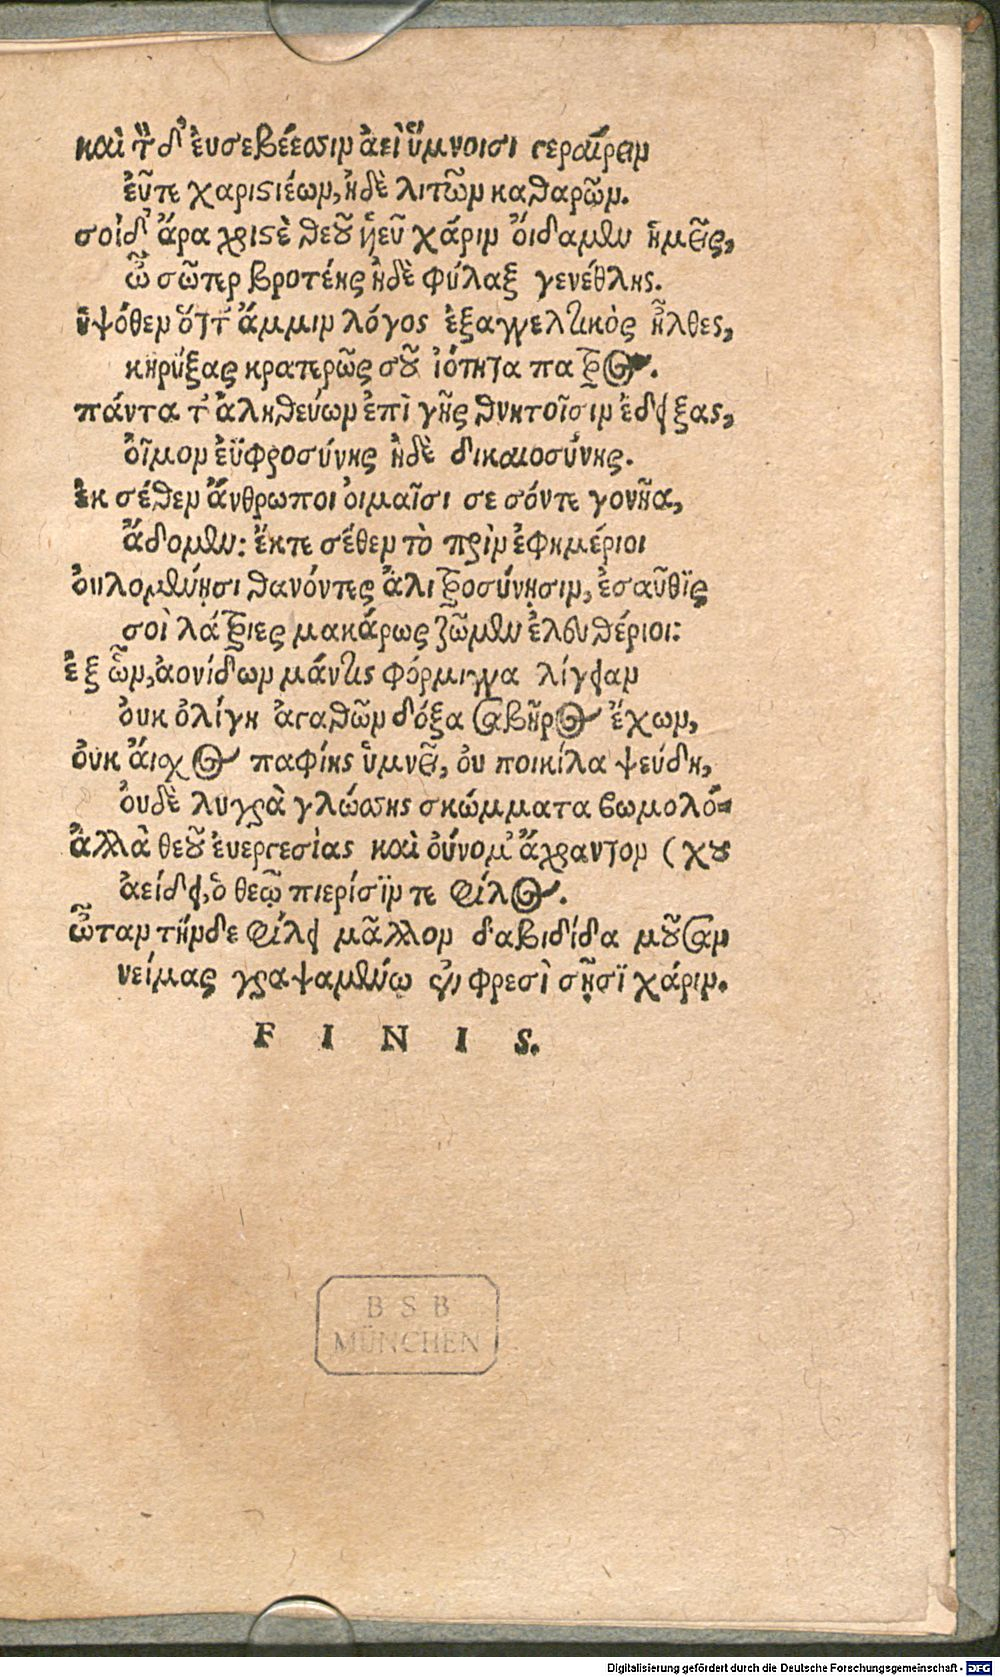 καὶ τ̈ δ' ἐυσεβέεσσιν ἀεὶ ὕμνοισι γεραίρειν
ἐῦτε χαρισιέων, ἠδὲ λιτῶν καθαρῶν.
σοὶ δ' ἄρα χριστὲ θεοῦ ἠεῦ χάριν ὄιδαμεν ἡμεῖς,
ὦ σῶτερ βροτέης ἠδὲ φύλαξ γενέθλης.
ὑψόθεν ὅττ' ἄμμιν λόγος ἐξαγγελτικὸς ἦλθες,
κηρύξας κρατερῶς σοῦ ἰότητα πατρος.
πάντα τ' ἀληθεύων ἐπὶ γῆς θνητοῖσιν ἔδειξας,
οἶμον ἐϋφροσύνης ἠδὲ δικαιοσύνης.
ἐκ σέθεν ἄνθρωποι οἰμαῖσι σε σόν τε γονῆα,
ἄδομεν: ἔκ τε σέθεν τὸ πρὶν ἐφημέριοι
ὀυλομένησι θανόντες ἀλιτροσύνησιν, ἐσαῦθϊς
σοὶ λάτριες μακάρως ζῶμεν ἐλευθέριοι:
ἐξ ὧν, ἀονίδων μάντις φόρμιγγα λίγειαν
ὀυκ ὀλίγη ἀγαθῶν δόξα σαβῆνος ἔχων,
ὀυκ ἄισχος παφίης ὑμνεῖ, ὀυ ποικίλα ψεύδη,
ὀυδὲ λυγρὰ γλώσσης σκώμματα βωμολό-
ἀλλὰ θεοῦ ἐυεργεσίας καὶ ὀύνομ' ἄχραντον (χου
ἀείδει, ὁ θεῷ πιερίσϊν τε φίλος.
ὦταν τήνδε φίλει μᾶλλον δαβιδίδα μοῦσαν
νείμας γραψαμένῳ ἐν φρεσὶ σῇσϊ χάριν.
F I N I S.
BSB
MÜNCHEN
Digitalisierung gefördert durch die Deutsche Forschungsgemeinschaft - DFG